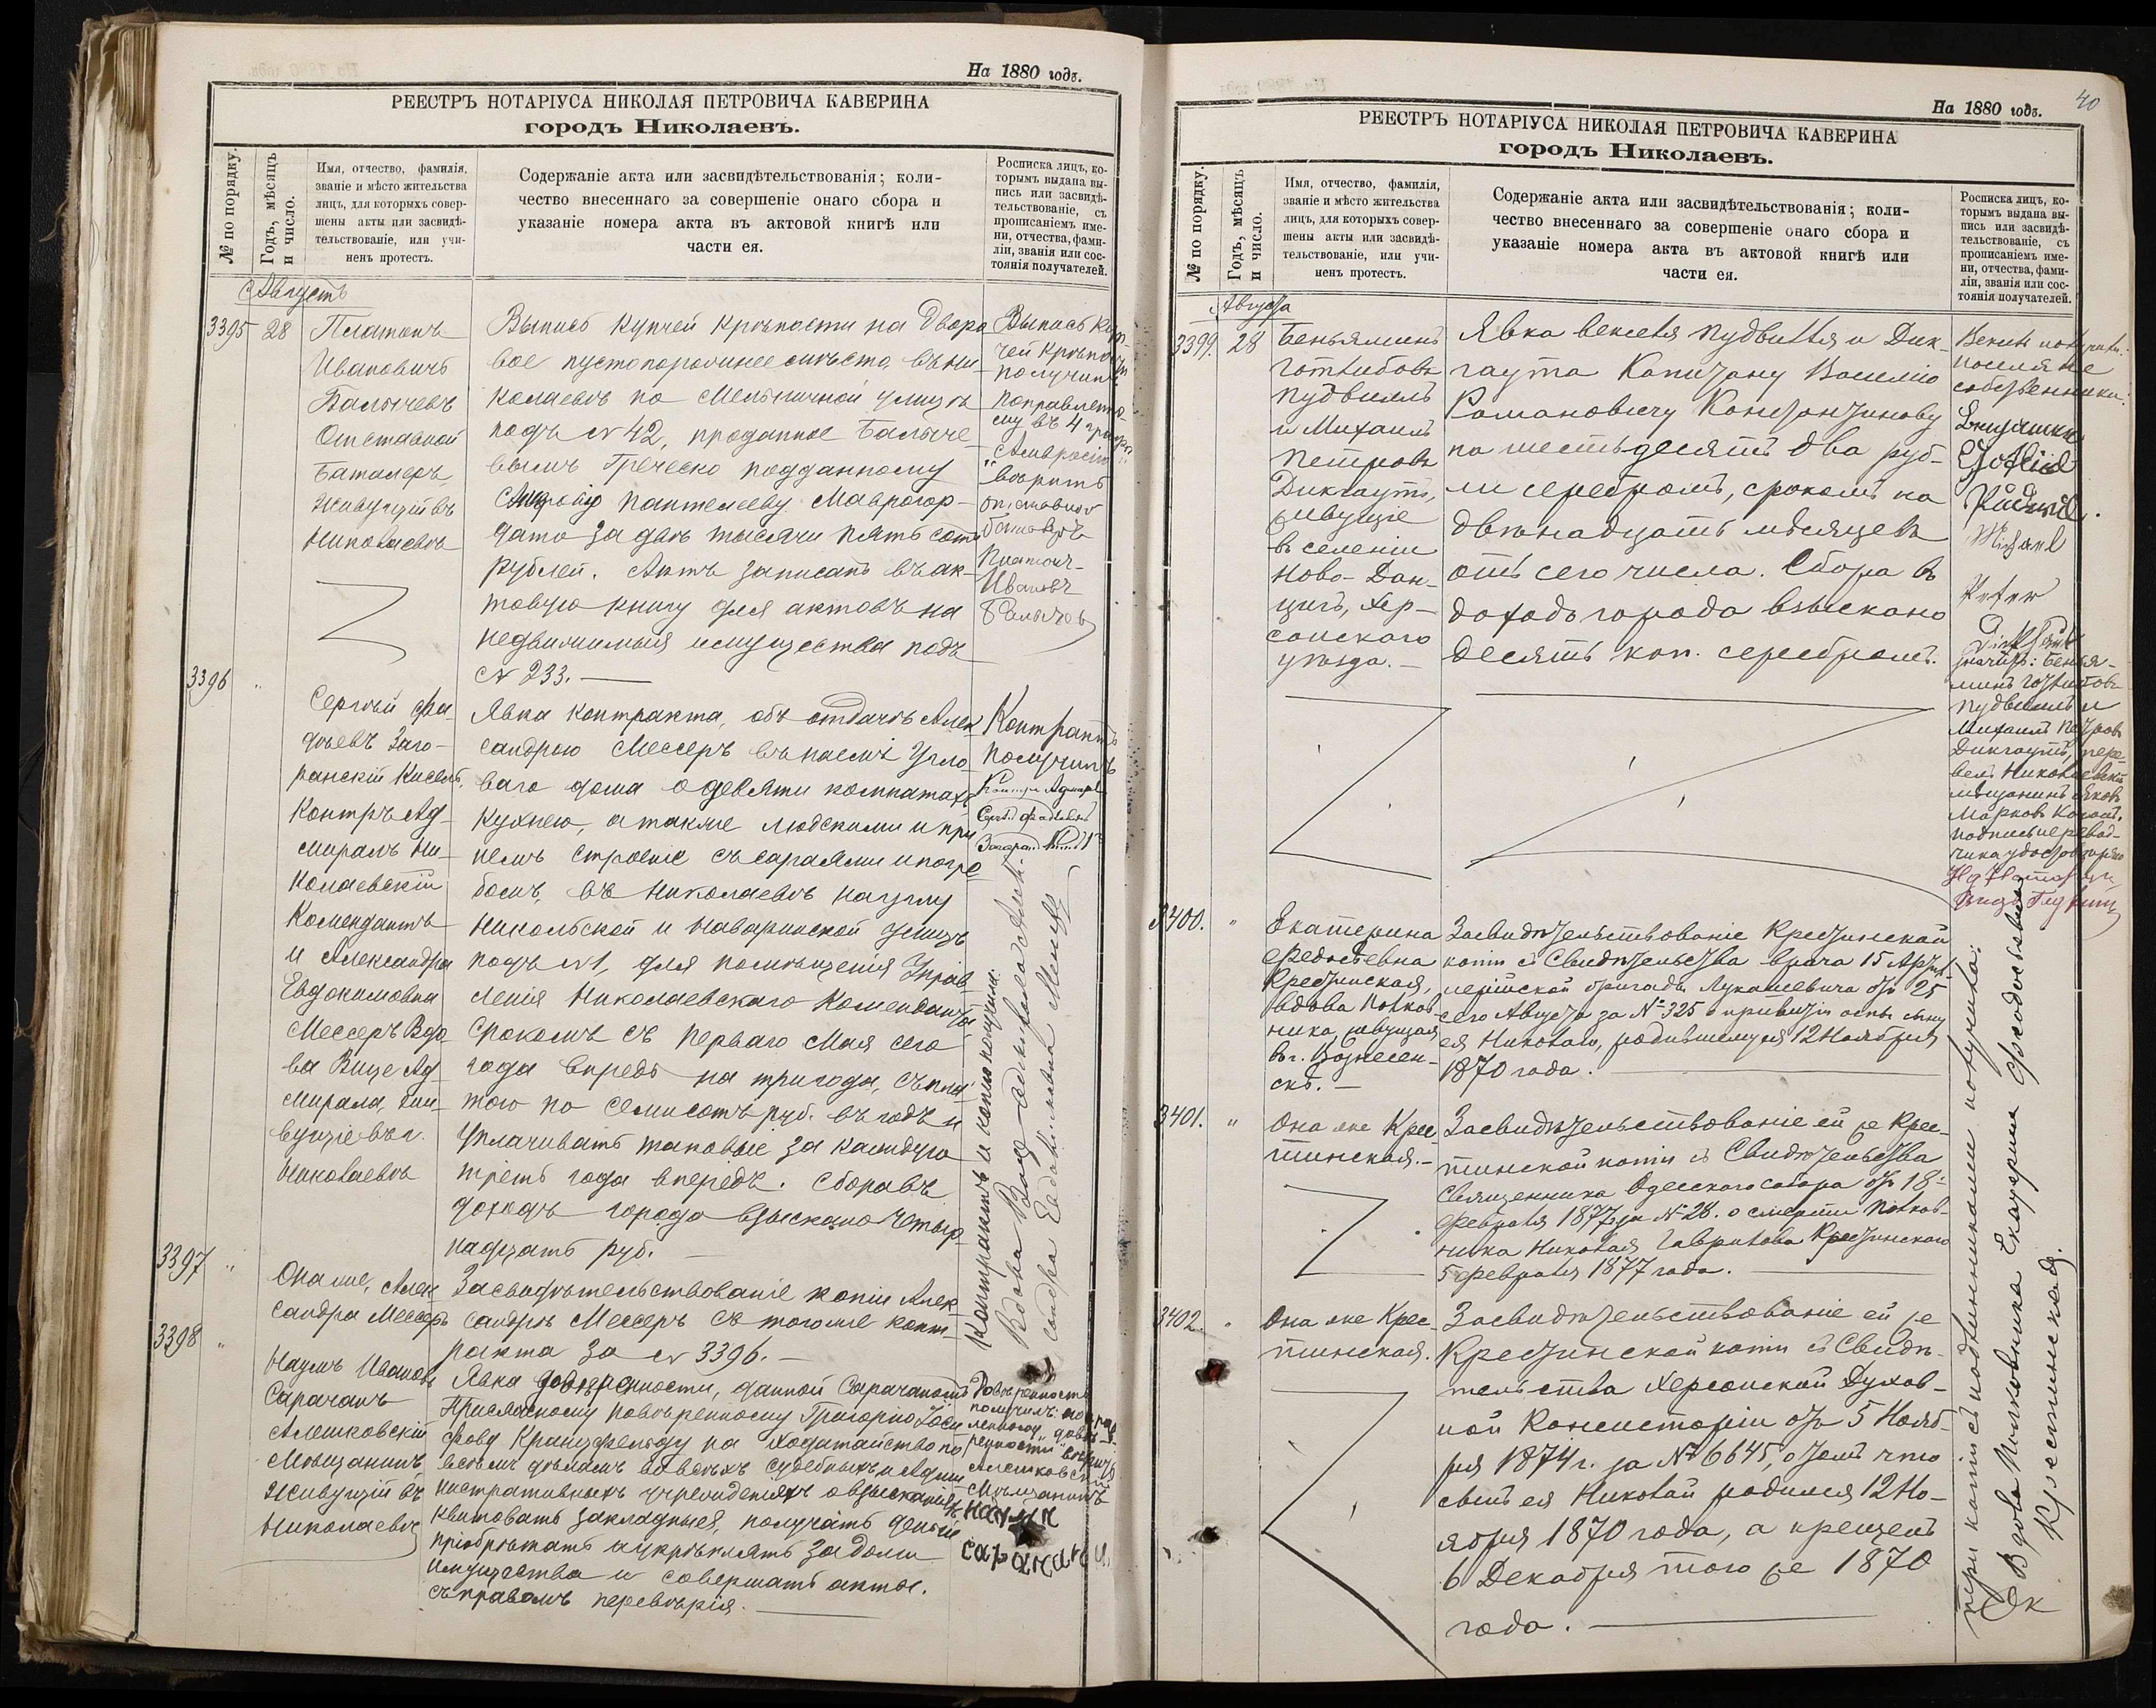 На 1880 годъ.
РЕЕСТРЪ НОТАРІУСА НИКОЛАЯ ПЕТРОВИЧА КАВЕРИНА
городъ Николаевъ.
№ по порядку.
Годъ, мѣсяцъ
и число.
Имя, отчество, фамилія,
званіе и мѣсто жительства
лицъ, для которыхъ совер-
шены акты или засвидѣ-
тельствованіе, или учи-
ненъ протестъ.
Содержаніе акта или засвидѣтельствованія; коли-
чество внесеннаго за совершеніе онаго сбора и
указаніе номера акта въ актовой книгѣ или
части ея.
Росписка лицъ, ко-
торымъ выдана вы-
пись или засвидѣ-
тельствованіе, съ
прописаніемъ име-
ни, отчества, фами-
ліи, званія или сос-
тоянія получателей.
Августъ
3395 28
Платонъ
Ивановичъ
Балычевъ
Отставной
Баталеръ
живущій въ
Николаевѣ
Выпись купчей крѣпости на Дворо
вое пустопорожнее мѣсто, въ Ни
колаевѣ по Мельничной улицѣ
подъ № 42, проданное Балыче
вымъ Греческо подданному
Пантелееву Маврогор-
дато за двѣ тысячи пять сотъ
рублей. Актъ записанъ въ ак-
товую книгу для актовъ на
недвижимыя имущества подъ
№ 233.
Выпись куп-
чей крѣпост
получилъ
Платонъ
Ивановъ
Балычевъ
3396 "
Сергѣй Фа-
дѣевъ Заго-
рянскій Кисель,
Контръ Ад-
миралъ Ни-
колаевскій
Комендантъ
и Александра
Евдокимовна
Мессеръ Вдо
ва Вице Ад-
мирала, жи-
вущіе въ г.
Николаевѣ
Явка контракта, объ отдачѣ Алек
сандрою Мессеръ въ наемъ Угло-
ваго дома о девяти комнатахъ
Кухнею, а также людскими и при
немъ строеніе съ сараями и погре
бомъ, въ Николаевѣ на углу
Никольской и Наваринской улицъ
подъ №1, для помѣщенія Управ
ленія Николаевскаго Коменданта
срокомъ съ перваго Мая сего
года впредь на три года, съ пла
тою по семисотъ руб. въ годъ и
уплачивать таковые за каждую
треть года впередъ. Сбора въ
доходъ города взыскано четыр-
надцать руб.
Контрактъ
получилъ
Контръ Адмиралъ
Контрактъ и копію получила
Вдова Вице-адмирала Алек-
сандра Евдокимовна Мессеръ
3397 "
Она же, Алек
сандра Мессеръ
Засвидѣтельствованіе копіи Алек-
сандрѣ Мессеръ съ того же конт-
ракта за № 3396.
3398 "
Наумъ Ивановъ
Сарачанъ
Алешковскій
Мѣщанинъ
живущій въ
Николаевѣ
Явка довѣренности, данной Сарачаномъ
Присяжному повѣренному Григорію Іоси
фову Кранцфельду на ходатайство по
всѣмъ дѣламъ во всѣхъ судебныхъ и Адми
нистративныхъ учрежденіяхъ о взысканіяхъ
квитовать закладныя, получать деньги
пріобрѣтать и укрѣплять за долги
имущества и совершать акты.
съ правомъ перевѣрія.
Довѣренность
получилъ:
Алешковскій
Мѣщанинъ
Наумъ
сарачанъ
40
На 1880 годъ.
РЕЕСТРЪ НОТАРІУСА НИКОЛАЯ ПЕТРОВИЧА КАВЕРИНА
городъ Николаевъ.
№ по порядку.
Годъ, мѣсяцъ
и число.
Имя, отчество, фамилія,
званіе и мѣсто жительства
лицъ, для которыхъ совер-
шены акты или засвидѣ-
тельствованіе, или учи-
ненъ протестъ.
Содержаніе акта или засвидѣтельствованія; коли-
чество внесеннаго за совершеніе онаго сбора и
указаніе номера акта въ актовой книгѣ или
части ея.
Росписка лицъ, ко-
торымъ выдана вы-
пись или засвидѣ-
тельствованіе, съ
прописаніемъ име-
ни, отчества, фами-
ліи, званія или сос-
тоянія получателей.
Августа
3399. 28
Беньяминъ
Готлибовъ
Пудвилль
и Михаилъ
Петровъ
Дикгаутъ,
живущіе
въ селеніи
Ново-Дан-
цигъ, Хер-
сонскаго
уѣзда.
Явка векселя Пудвилля и Дик-
гаута Капитану Василію
Романовичу Константинову
на шестьдесятъ два руб-
ли серебромъ, срокомъ на
двѣнадцать мѣсяцевъ
отъ сего числа. Сбора въ
доходъ города взыскано
десять коп. серебромъ.
поселяне
собственники:
Michael
Peter
значитъ: Бенья-
минъ Готлибовъ
Пудвилль и
Михаилъ Петровъ
Дикгаутъ, пере-
велъ Николаевскій
мѣщанинъ Яковъ
Марковъ
подпись перевод-
чика удостовѣряю
3400. "
Екатерина
Федосѣевна
Крестинская,
вдова Полков-
ника, живущая
въ г. Вознесен-
скѣ.
Засвидѣтельствованіе Крестинской
копіи съ Свидѣтельства врача 15 Артил-
лерійской бригады Лукашевича отъ 25
сего Августа за № 325 о привитіи оспы сыну
ея Николаю, родившемуся 12 Ноября
1870 года.
3401. "
Она же Крес-
тинская.
Засвидѣтельствованіе ей же Крес-
тинской копіи съ Свидѣтельства
Священника Одесскаго собора отъ 18
Февраля 1877 за № 28. о смерти Полков-
ника Николая Гаврилова Крестинскаго
5 Февраля 1877 года.
3402. "
Она же Крес-
тинская.
Засвидѣтельствованіе ей же
Крестинской копіи съ Свидѣ-
тельства Херсонской Духов-
ной Консисторіи отъ 5 Нояб-
ря 1874 г. за № 6645, о томъ что
сынъ ея Николай родился 12 Но-
ября 1870 года, а крещенъ
6 Декабря того же 1870
года.
три копіи съ подлинниками получила:
Вдова Полковника Екатерина Федосѣевна
Крестинская.